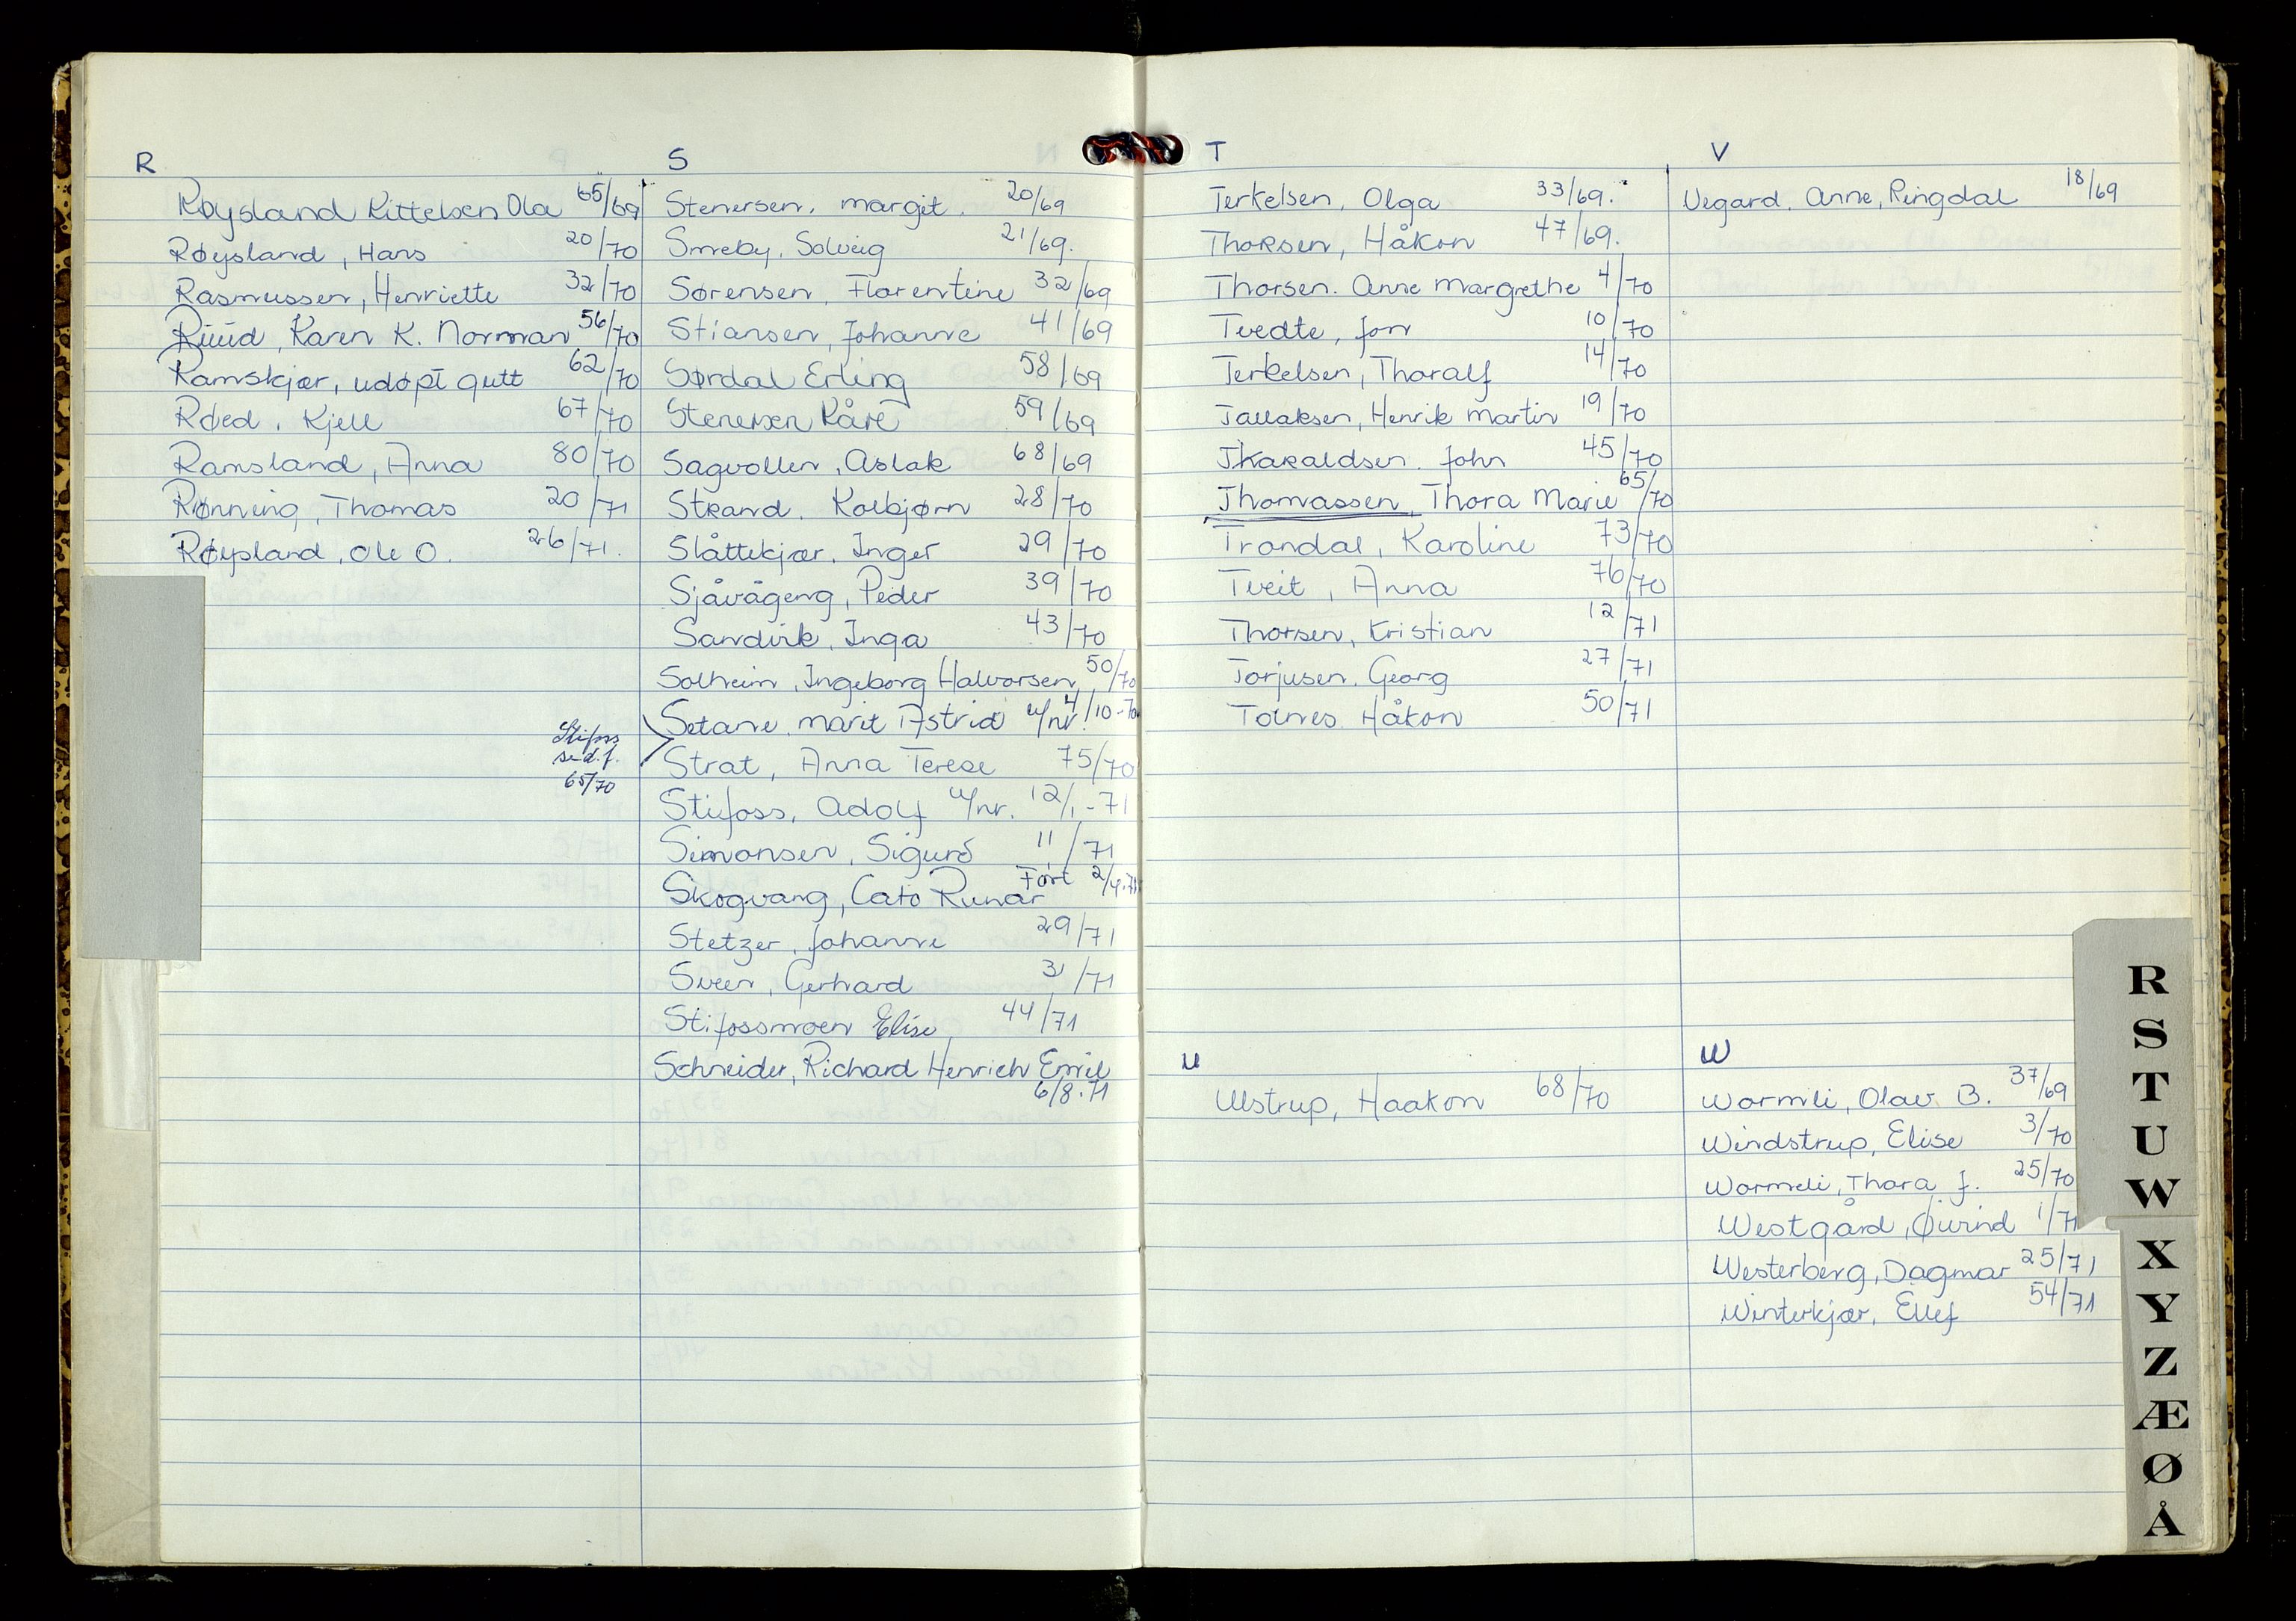 R
Røysland Kittelsen Ola 65/69
Røysland, Hans 20/70
Rasmussen, Henriette 32/70
Ruud, Karen K. Norman 56/70
Ramskjær, udøpt gutt 62/70
Røed, Kjell 67/70
Ramsland, Anna 80/70
Rønning, Thomas 20/71
Røysland, Ole O. 26/71.
S
Stenersen, Margit. 20/69
Smeby, Solveig 21/69.
Sørensen, Florentine 32/69
Stiansen, Johanne 41/69
Sørdal Erling 58/69
Stenersen Kåre 59/69
Sagvollen, Aslak 68/69
Strand, Kolbjørn 28/70
Slåttekjær, Inger 29/70
Sjåvågeng, Peder 39/70
Sandvik, Inga 43/70
Solheim, Ingeborg Halvorsen 50/70
Setane, Marit Astrid u/nr. 4/10-70
Stifoss
se d.f.
65/70
Strat, Anna Terese 75/70
Stifoss, Adolf u/nr. 12/1-71
Simonsen, Sigurd 11/71
Skogvang, Cato Runar Fort 2/4.71
Stetzer, Johanne 29/71
Sveen, Gerhard 31/71
Stifossmoen Elise 44/71
Schneider, Richard Henrich Emil
6/8.71
T
Terkelsen, Olga 33/69.
Thorsen, Håkon 47/69.
Thorsen. Anne Margrethe 4/70
Tvedte, Jon 10/70
Terkelsen, Thoralf 14/70
Tallaksen, Henrik Martin 19/70
Tharaldsen. John 45/70
Thomassen, Thora Marie 65/70
Trondal, Karoline 73/70
Tveit, Anna 76/70
Thorsen, Kristian 12/71
Torjusen. Georg 27/71
Tornes. Håkon 50/71
V
Vegard. Anne, Ringdal 18/69
U
Ulstrup, Haakon 68/70
W
Wormli, Olav B. 37/69
Windstrup, Elise 3/70
Wormeli, Thora J. 25/70
Westgård, Øivind 1/71
Westerberg, Dagmar 25/71
Winterkjær, Ellef 54/71
R
S
T
U
W
X
Y
Z
Æ
Ø
Å